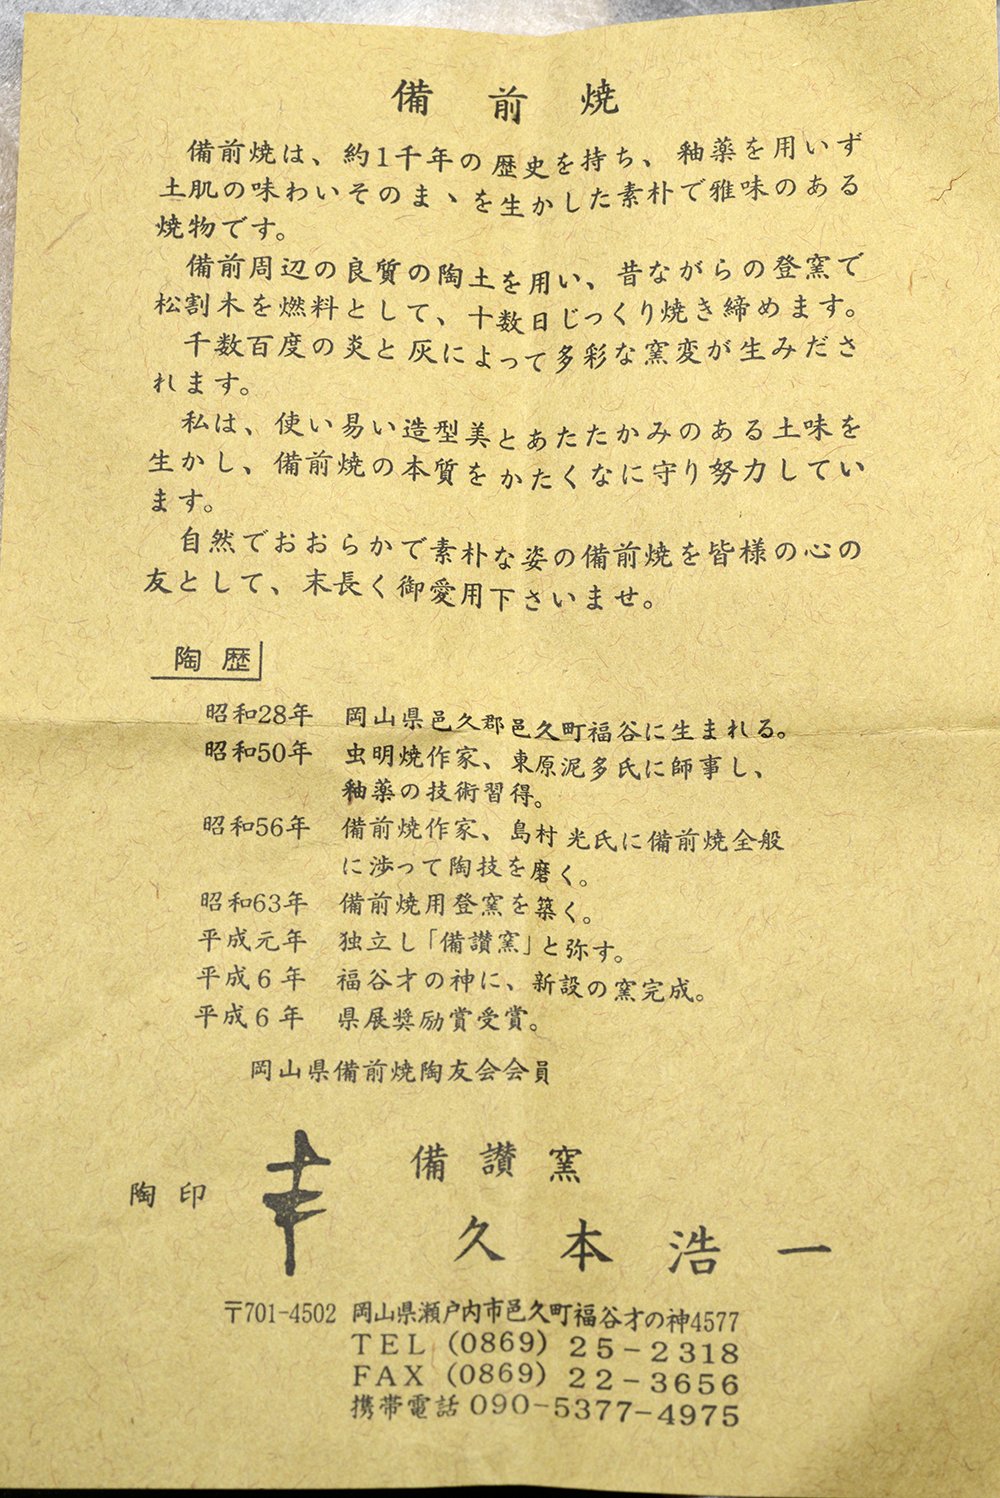 備前焼
備前焼は、約1千年の歴史を持ち、釉薬を用いず
土肌の味わいそのまゝを生かした素朴で雅味のある
焼物です。
備前周辺の良質の陶土を用い、昔ながらの登窯で
松割木を燃料として、十数日じっくり焼き締めます。
千数百度の炎と灰によって多彩な窯変が生みださ
れます。
私は、使い易い造型美とあたたかみのある土味を
生かし、備前焼の本質をかたくなに守り努力してい
ます。
自然でおおらかで素朴な姿の備前焼を皆様の心の
友として、末長く御愛用下さいませ。
陶歴
昭和28年 岡山県邑久郡邑久町福谷に生まれる。
昭和50年 虫明焼作家、東原泥多氏に師事し、
釉薬の技術習得。
昭和56年 備前焼作家、島村光氏に備前焼全般
に渉って陶技を磨く。
昭和63年 備前焼用登窯を築く。
平成元年 独立し「備讃窯」と弥す。
平成6年 福谷才の神に、新設の窯完成。
平成6年 県展奨励賞受賞。
岡山県備前焼陶友会会員
陶印
備讃窯
久本浩一
〒701-4502 岡山県瀬戸内市邑久町福谷才の神4577
TEL (0869) 25-2318
FAX (0869) 22-3656
携帯電話 090-5377-4975